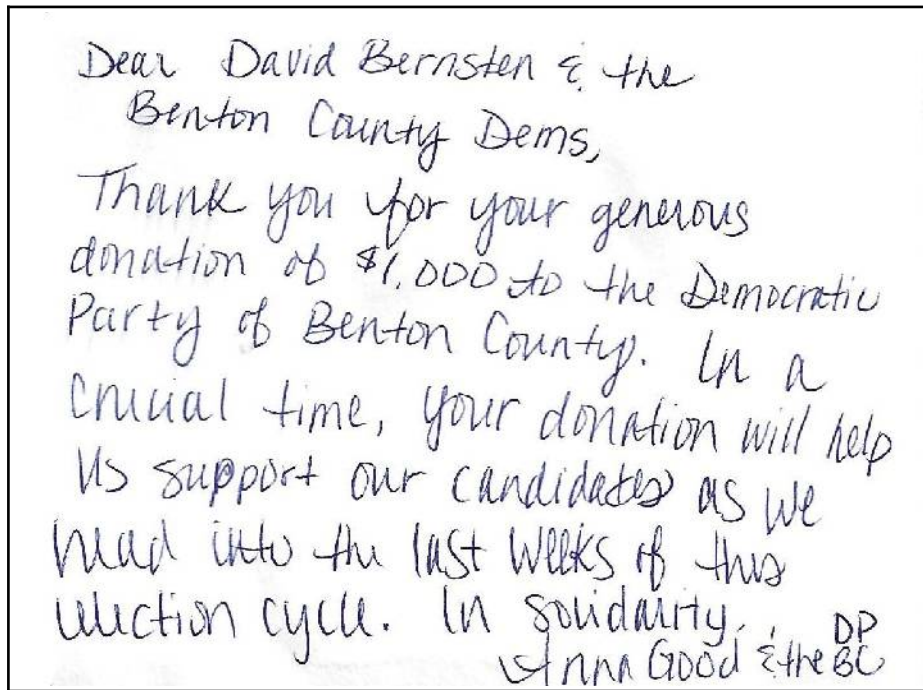 Dear David Bernsten & the
Benton County Dems,
Thank you for your generous
donation of $1,000 to the Democratic
Party of Benton County. In a
crucial time, your donation will help
us support our candidates as we
head into the last weeks of this
election cycle. In solidarity,
Anna Good & the DPBC